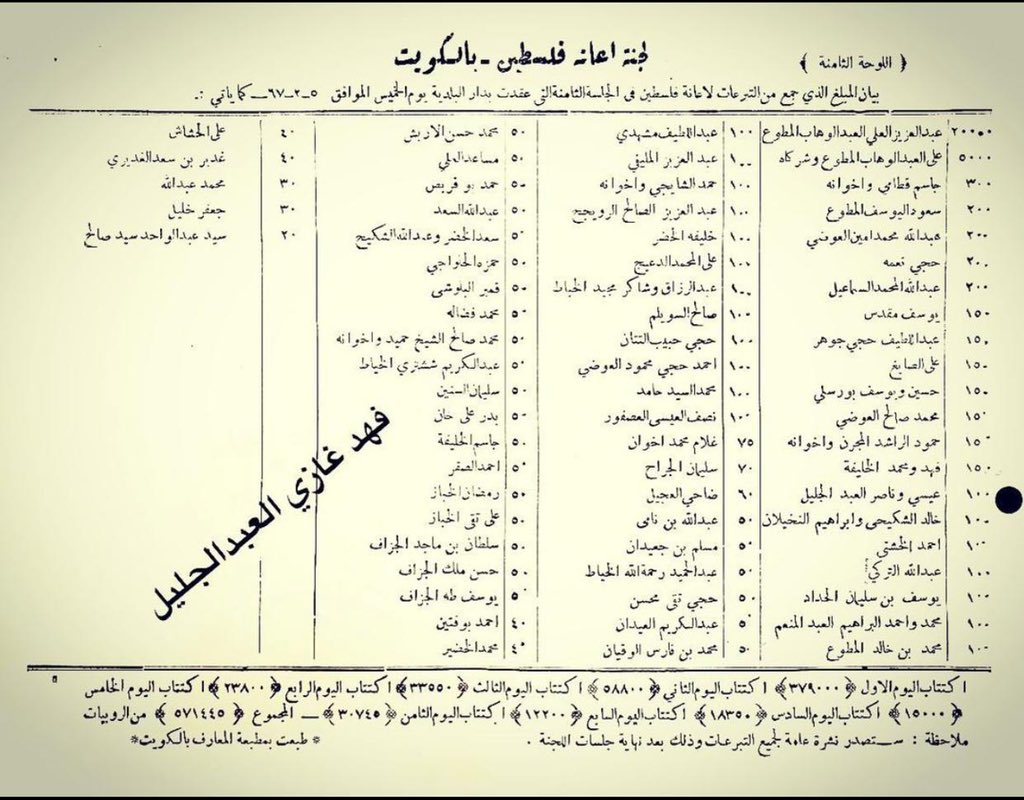 ﴿ اللوحة الثامنة ﴾
لجنة اعانة فلسطين - بالكويت
بيان المبلغ الذي جمع من التبرعات لاعانة فلسطين فى الجلسة الثامنة التى عقدت بدار البلدية يوم الخميس الموافق ٥-٢-٦٧ - كما ياتي :-
٢٠٠٠٠ عبدالعزيز العلي العبدالوهاب المطوع
٥٠٠٠ على العبدالوهاب المطوع وشركاه
٣٠٠ جاسم قطامى واخوانه
٢٠٠ سعود اليوسف المطوع
٢٠٠ عبدالله محمد امين العوضي
٢٠٠ حجي نعمه
٢٠٠ عبدالله المحمد السماعيل
١٥٠ يوسف مقدس
١٥٠ عبد اللطيف حجي جوهر
١٥٠ على الصايغ
١٥٠ حسين ويوسف بورسلي
١٥٠ محمد صالح العوضي
١٥٠ حمود الراشد المجرن واخوانه
١٥٠ فهد ومحمد الخليفة
١٠٠ عيسي وناصر العبد الجليل
١٠٠ خالد الشكيحى وابراهيم النخيلان
١٠٠ احمد الخشتي
١٠٠ عبدالله التركي
١٠٠ يوسف بن سليمان الحداد
١٠٠ محمد واحمد البراهيم العبد المنعم
١٠٠ محمد بن خالد المطوع
١٠٠ عبداللطيف مشهدي
١٠٠ عبد العزيز المليفي
١٠٠ حمد الشايجي واخوانه
١٠٠ عبد العزيز الصالح الرويجح
١٠٠ خليفه الخضر
١٠٠ على المحمد الدعيج
١٠٠ عبدالرزاق وشاكر مجيد الخياط
١٠٠ صالح السويلم
١٠٠ حجي حبيب التتان
١٠٠ احمد حجي محمود العوضي
١٠٠ محمد السيد حامد
١٠٠ نصف العيسى العصفور
٧٥ غلام محمد اخوان
٧٠ سليمان الجراح
٦٠ ضاحي العجيل
٥٠ عبدالله بن نامى
٥٠ مسلم بن جعيدان
٥٠ عبدالحميد رحمة الله الخياط
٥٠ حجي تقى محسن
٥٠ عبدالكريم العيدان
٥٠ محمد بن فارس الوقيان
٥٠ محمد حسن الاربش
٥٠ مساعد العلي
٥٠ حمد بو قريص
٥٠ عبدالله السعد
٥٠ سعد الخضر وعبدالله الشكيح
٥٠ حمزه الخواجي
٥٠ قمبر البلوشى
٥٠ محمد فضاله
٥٠ محمد صالح الشيخ حميد واخوانه
٥٠ عبدالكريم ششتري الخياط
٥٠ سليمان السنين
٥٠ بدر على خان
٥٠ جاسم الخليفة
٥٠ احمد الصقر
٥٠ رمضان الخباز
٥٠ على تقى الخباز
٥٠ سلطان بن ماجد الجزاف
٥٠ حسن ملك الجزاف
٥٠ يوسف طه الجزاف
٤٠ احمد بوفتين
٤٠ محمد الخضير
٤٠ على الخشاش
٤٠ غدير بن سعد الغديري
٣٠ محمد عبدالله
٣٠ جعفر خليل
٢٠ سيد عبدالواحد سيد صالح
فهد غازي العبدالجليل
اكتتاب اليوم الاول ﴿٣٧٩٠٠٠﴾ اكتتاب اليوم الثاني ﴿٥٨٨٠٠﴾ اكتتاب اليوم الثالث ﴿٣٣٥٥٠﴾ اكتتاب اليوم الرابع ﴿٢٣٨٠٠﴾ اكتتاب اليوم الخامس
﴿١٥٠٠٠﴾ اكتتاب اليوم السادس ﴿١٨٣٥٠﴾ اكتتاب اليوم السابع ﴿١٢٢٠٠﴾ اكتتاب اليوم الثامن ﴿٣٠٧٤٥﴾ - المجموع ﴿٥٧١٤٤٥﴾ من الروبيات
ملاحظة : ستصدر نشرة عامة لجميع التبرعات وذلك بعد نهاية جلسات اللجنة . * طبعت بمطبعة المعارف بالكويت *